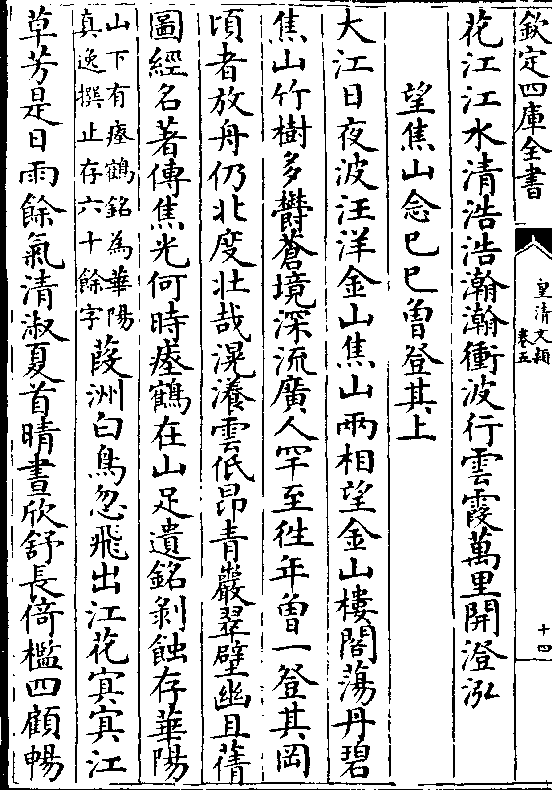 欽定四庫全書
皇清文穎
卷五
十四
花江江水清浩浩瀚瀚衝波行雲霞萬里開澄泓
望焦山念己巳曾登其上
大江日夜波汪洋金山焦山兩相望金山樓閣蕩丹碧
焦山竹樹多欝蒼境深流廣人罕至徃年曾一登其岡
頃者放舟仍北度壯哉滉瀁雲低昂青巖翠壁幽且蒨
圖經名著傳焦光何時瘗鶴在山足遺銘剝蝕存華陽
山下有瘗鶴銘為華陽
真逸撰止存六十餘字
葭洲白鳥忽飛出江花寘寘江
草芳是日雨餘氣清淑夏首晴晝欣舒長倚檻四顧暢